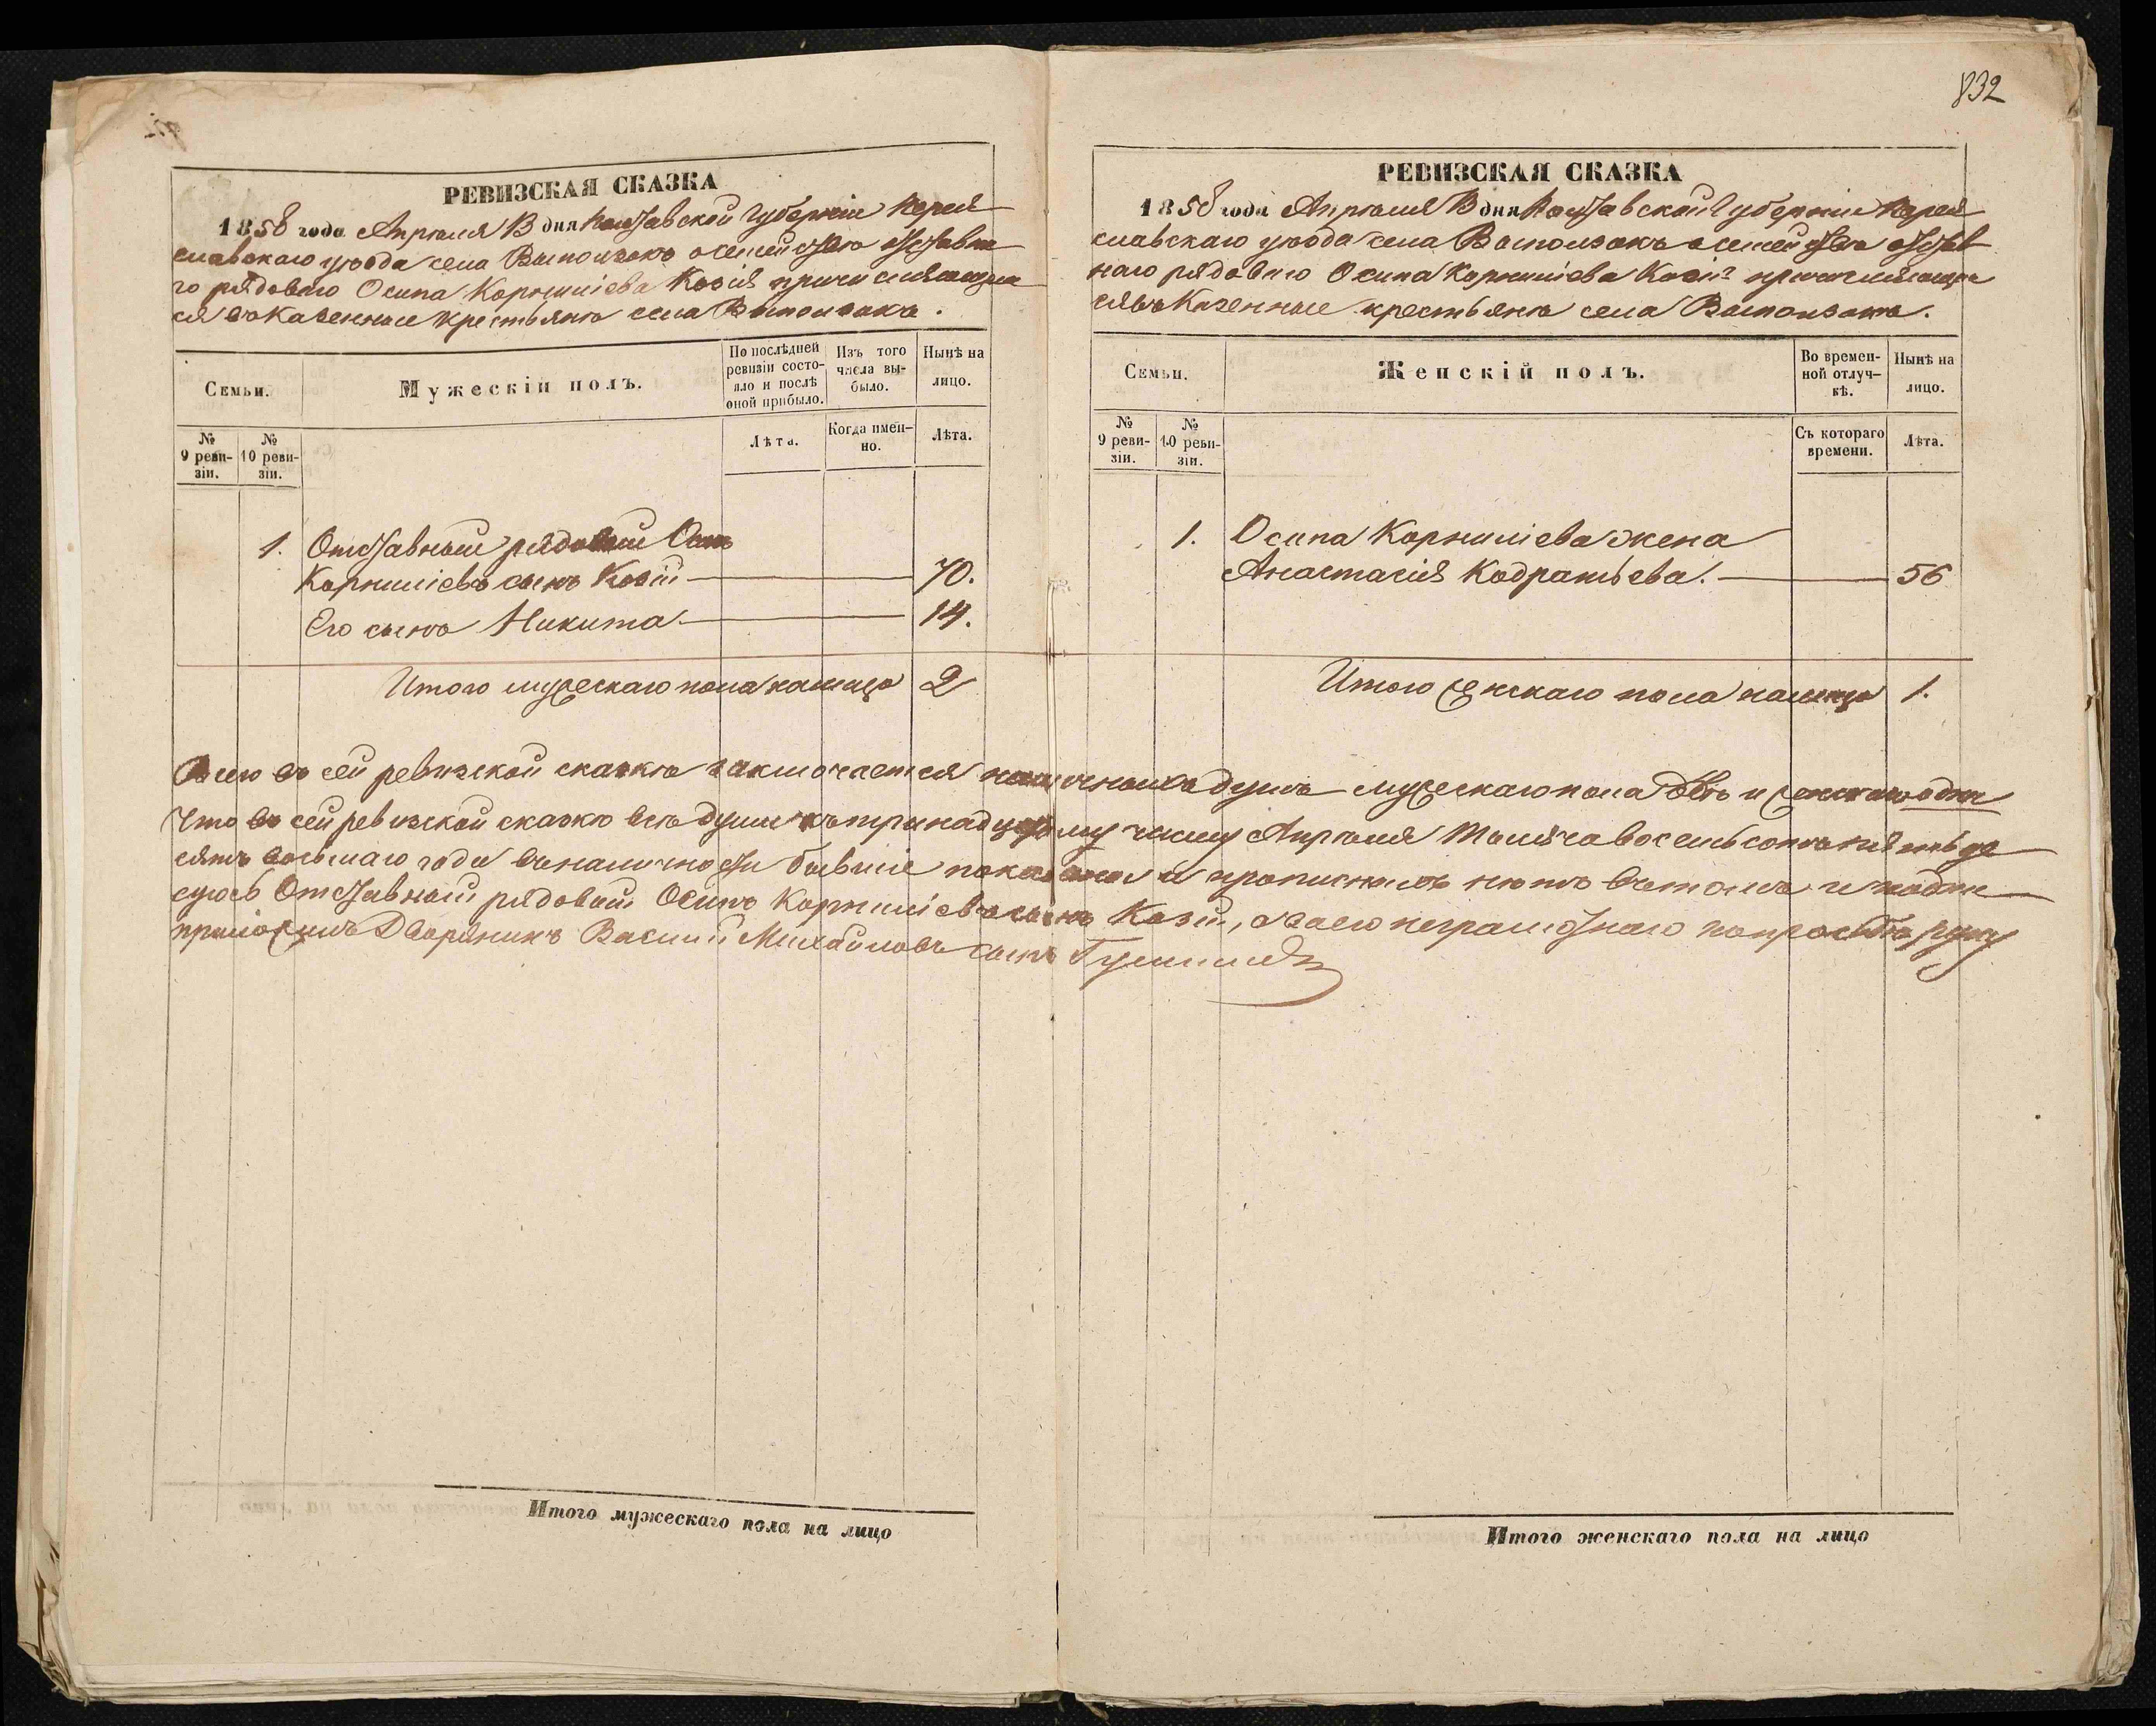 832
РЕВИЗСКАЯ СКАЗКА
1858 года Апрѣля 13 дня Полтавской Губерніи Перея
славскаго уѣзда села Выползокъ о семействѣ отставна
го рядового Осипа Корниліева Козія причисляющаго
ся въ Казенные крестьяне села Выползокъ.
Семьи.
Мужескій полъ.
По послѣдней ревизіи состояло и послѣ оной прибыло.
Изъ того числа выбыло.
Нынѣ на лицо.
№ 9 ревизіи.
№ 10 ревизіи.
Лѣта.
Когда именно.
Лѣта.
1. Отставный рядовый Осипъ
Корниліевъ сынъ Козій 70.
Его сынъ Никита 14.
Итого мужескаго пола налицо 2
РЕВИЗСКАЯ СКАЗКА
1858 года Апрѣля 13 дня Полтавской Губерніи Перея
славскаго уѣзда села Выползокъ о семействѣ отстав
наго рядового Осипа Корниліева Козія причисляющаго
ся въ Казенные крестьяне села Выползокъ.
Семьи.
Женскій полъ.
Во временной отлучкѣ.
Нынѣ на лицо.
№ 9 ревизіи.
№ 10 ревизіи.
Съ котораго времени.
Лѣта.
1. Осипа Корниліева жена
Анастасія Кодратьева. 56
Итого женскаго пола налицо 1.
Всего въ сей ревизской сказкѣ заключается наличныхъ душъ мужескаго пола двѣ и женскаго одна
Что въ сей ревизской сказкѣ всѣ души къ тринадцатому числу Апрѣля тысяча восемьсотъ пятьде
сятъ восьмаго года въ наличности бывшіе показаны и прописныхъ нѣтъ въ томъ и подпи
суюсь Отставный рядовый Осипъ Корниліевъ сынъ Козій, а за его неграмотнаго по просьбѣ руку
приложилъ Дворянинъ Василій Михайловъ сынъ
Итого мужескаго пола на лицо
Итого женскаго пола на лицо